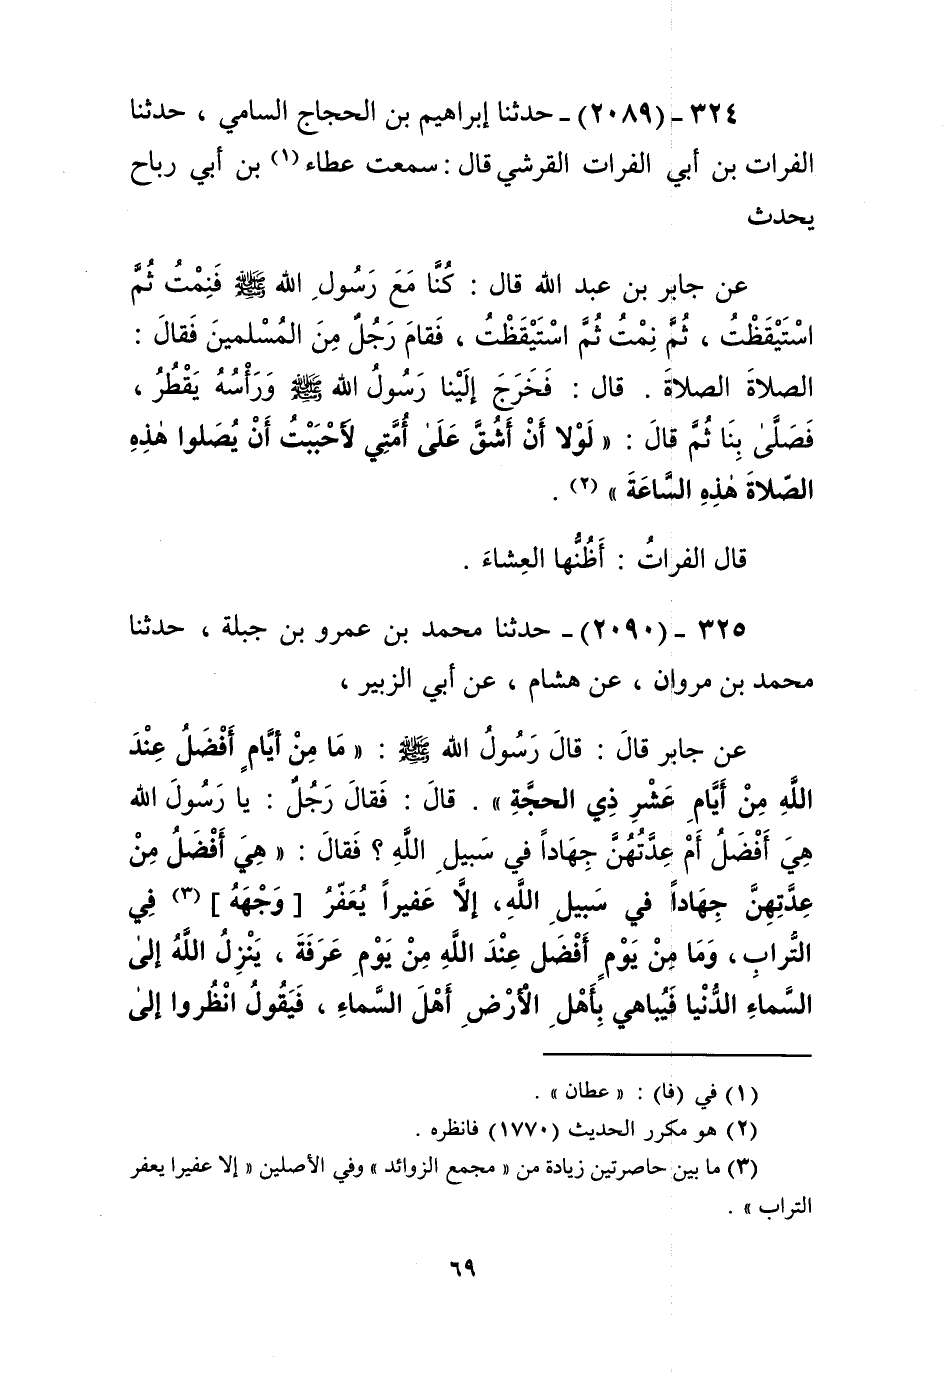 ٣٢٤ ـ (٢٠٨٩) ـ حدثنا إبراهيم بن الحجاج السامي ، حدثنا
الفرات بن أبي الفرات القرشي قال : سمعت عطاء (١) بن أبي رباح
يحدث
عن جابر بن عبد الله قال : كُنَّا مَعَ رَسُولِ الله ﷺ فَنِمْتُ ثُمَّ
اسْتَيْقَظْتُ ، ثُمَّ نِمْتُ ثُمَّ اسْتَيْقَظْتُ ، فَقامَ رَجُلٌ مِنَ المُسْلمينَ فَقالَ :
الصلاةَ الصلاةَ . قال : فَخَرَجَ إِلَيْنا رَسُولُ الله ﷺ وَرَأْسُهُ يَقْطُرُ ،
فَصَلَّىٰ بِنَا ثُمَّ قالَ : « لَوْلا أَنْ أَشُقَّ عَلَىٰ أُمَّتِي لَأَحْبَبْتُ أَنْ يُصَلوا هٰذِهِ
الصّلاةَ هٰذِهِ السَّاعَةَ » (٢) .
قال الفراتُ : أَظُنُّها العِشاءَ .
٣٢٥ ـ (٢٠٩٠) ـ حدثنا محمد بن عمرو بن جبلة ، حدثنا
محمد بن مروان ، عن هشام ، عن أبي الزبير ،
عن جابر قالَ : قالَ رَسُولُ الله ﷺ : « مَا مِنْ أيَّامٍ أَفْضَلُ عِنْدَ
اللَّهِ مِنْ أَيَّامِ عَشْرِ ذِي الحجَّةِ » . قالَ : فَقالَ رَجُلٌ : يا رَسُولَ الله
هِيَ أَفْضَلُ أَمْ عِدَّتُهُنَّ جِهَاداً في سَبيلِ اللَّهِ ؟ فَقالَ : « هِيَ أَفْضَلُ مِنْ
عِدَّتِهِنَّ جِهَاداً في سَبيلِ اللَّهِ، إلَّا عَفيراً يُعَفّرُ [ وَجْهَهُ ] (٣) فِي
التُّرابِ، وَمَا مِنْ يَوْمٍ أَفْضَل عِنْدَ اللَّهِ مِنْ يَوْمِ عَرَفَةَ ، يَنْزِلُ اللَّهُ إلىٰ
السَّماءِ الدُّنْيا فَيُباهي بِأَهْلِ الْأَرْضِ أَهْلَ السَّماءِ ، فَيَقُولُ انْظُروا إلىٰ
(١) في (فا) : « عطان » .
(٢) هو مكرر الحديث (١٧٧٠) فانظره .
(٣) ما بين حاصرتين زيادة من « مجمع الزوائد » وفي الأصلين « إلا عفيرا يعفر
التراب » .
٦٩